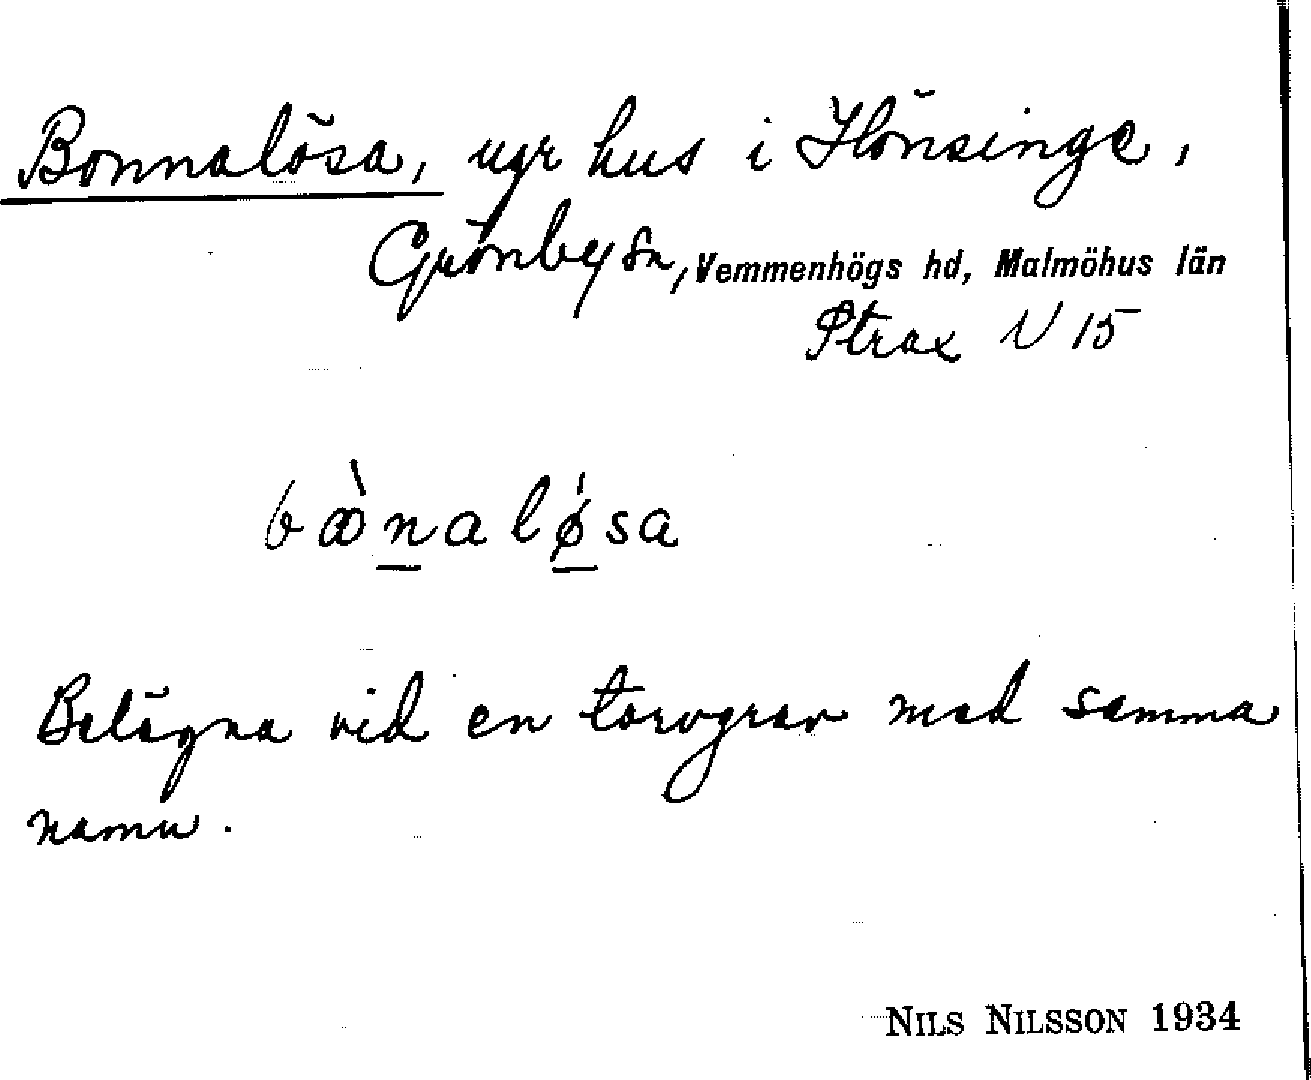 Bonnalösa, ngr hus i Hönsinge,
Grönby sn, Vemmenhögs hd, Malmöhus län
Strax V 15
bꝏ̀naløsa
Belägna vid en torvgrav med samma
namn.
NILS NILSSON 1934